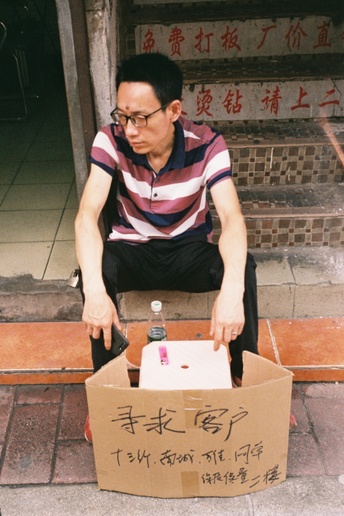 免费打板 厂价直
烫钻 请上二
寻求 客户
十三行.南城.万佳.同单
保质保量 二楼